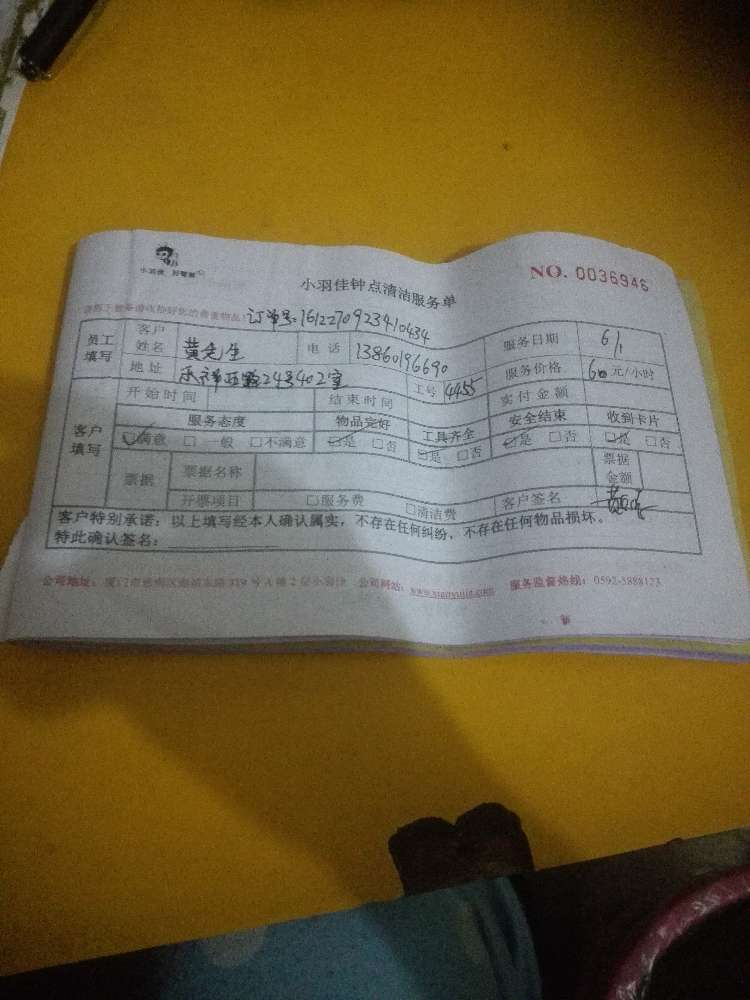 小羽佳 好管家
小羽佳钟点清洁服务单
NO. 0036946
订单号:1612270923410434
员工填写 客户姓名 黄先生 电话 13860196690 服务日期 6/1
地址 24号402室 工号 4455 服务价格 60元/小时
客户填写 开始时间 结束时间 实付金额
服务态度 物品完好 工具齐全 安全结束 收到卡片
☑满意 □一般 □不满意 ☑是 □否 ☑是 □否 ☑是 □否 ☑是 □否
票据 票据名称 票据金额
开票项目 □服务费 □清洁费 客户签名
客户特别承诺:以上填写经本人确认属实,不存在任何纠纷,不存在任何物品损坏。
特此确认签名:
公司地址:厦门市思明区 号A幢2层小羽佳 公司网站:www.xiaoyujia.com 服务监督热线:0592-5888123